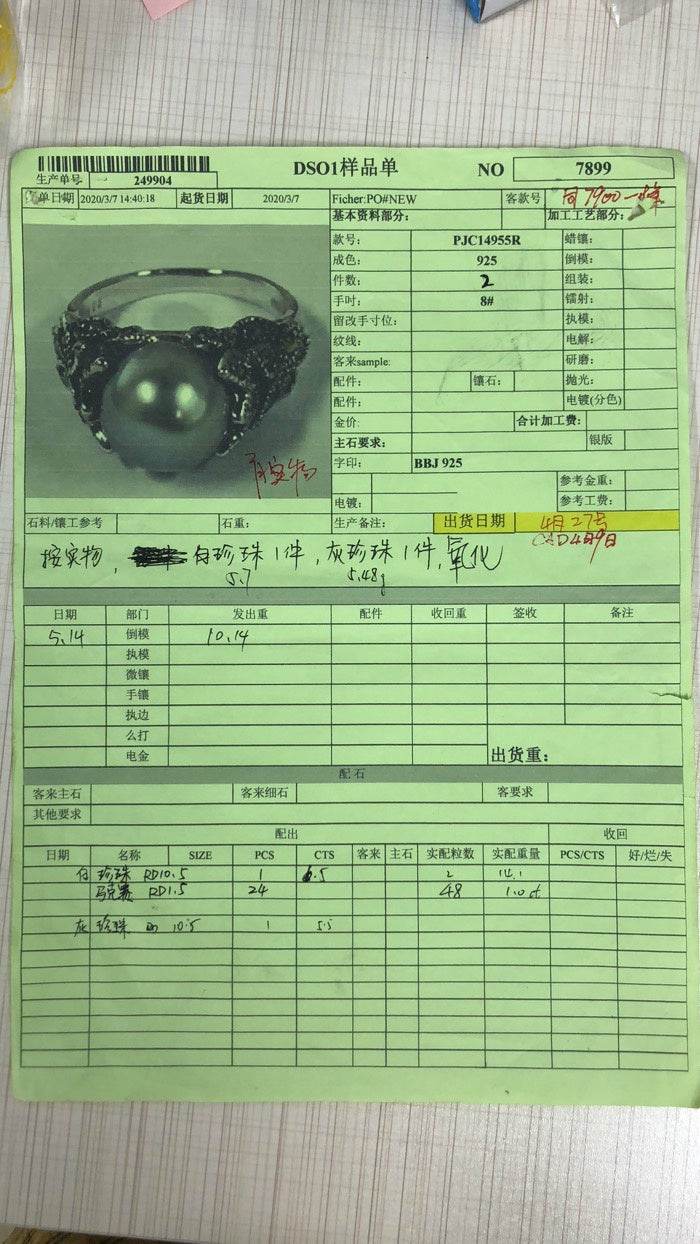 DSO1样品单 NO 7899
生产单号 249904
单日期 2020/3/7 14:40:18 起货日期 2020/3/7 Ficher:PO#NEW 客款号 同7900一样
基本资料部分: 加工工艺部分:
款号: PJC14955R 蜡镶:
成色: 925 倒模:
件数: 2 组装:
手吋: 8# 镭射:
留改手寸位: 执模:
纹线: 电解:
客来sample: 研磨:
配件: 镶石: 抛光:
配件: 电镀(分色)
金价: 合计加工费:
主石要求: 银版
字印: BBJ 925
有实物
参考金重:
电镀: 参考工费:
石料/镶工参考 石重: 生产备注: 出货日期 4月27号
CAD4月9日
按实物, 白珍珠1件, 灰珍珠1件, 氧化
5.7 5.48g
日期 部门 发出重 配件 收回重 签收 备注
5.14 倒模 10.14
执模
微镶
手镶
执边
么打
电金 出货重:
配石
客来主石 客来细石 客要求
其他要求
配出 收回
日期 名称 SIZE PCS CTS 客来 主石 实配粒数 实配重量 PCS/CTS 好/烂/失
白珍珠 RD10.5 1 6.5 2 14.1
马克赛 RD1.5 24 48 1.0ct
灰珍珠 10.5 1 5.5